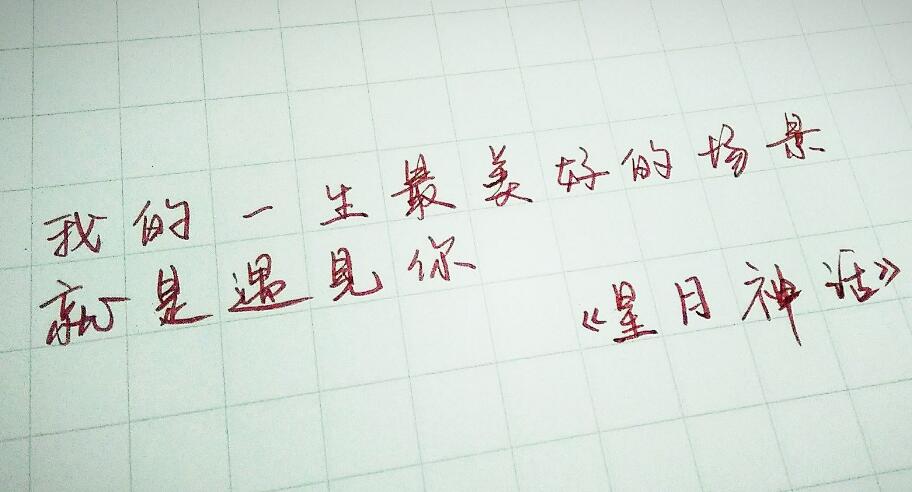 我的一生最美好的场景
就是遇见你
《星月神话》